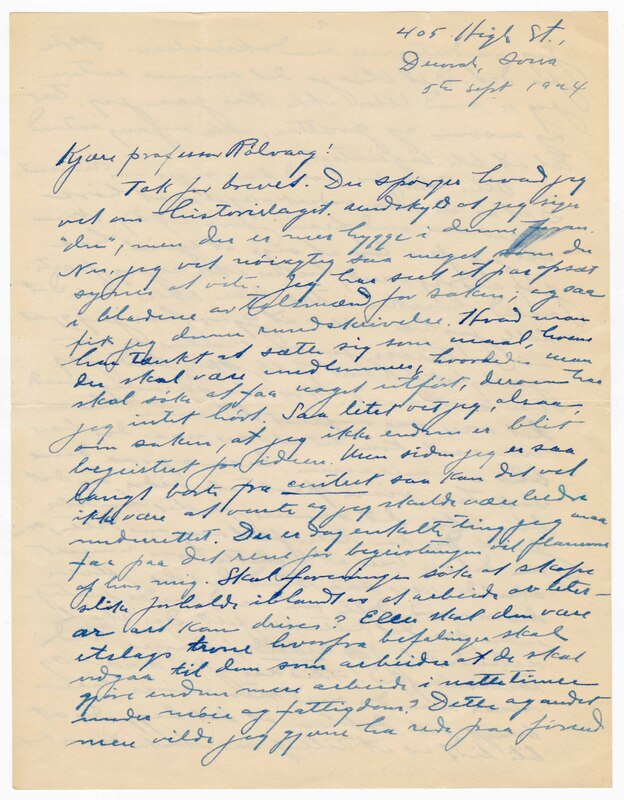 405 High St.,
Decorah, Iowa
5th Sept 1924
Kjære professor Rölvaag!
Tak for brevet. Du spörger hvad jeg
vet om historielaget. undskyld at jeg siger
"du", men der er mer hygge i denne form.
Nu, jeg vet nöiagtig saa meget som du
synes at vite. Jeg har seet et par opsæt
i bladene av talsmænd for saken; og saa
fik jeg denne rundskrivelse. Hvad man
har tænkt at sætte sig som maal, hvem
der skal være medlemmer, hvordan man
skal söke at faa noget utfört, derom har
jeg intet hört. Saa litet vet jeg, altsaa,
om saken, at jeg ikke endnu er blit
begeistret for ideen. Men siden jeg er saa
langt borte fra centret saa kan det vel
ikke være at vente at jeg skulde være bedre
underrettet. Der er dog enkelte ting jeg maa
faa paa det rene för begeistringen vil flamme
op hos mig. Skal foreningen söke at skape
slike forholde iblandt os at arbeide av liter-
ær art kan drives? Eller skal den være
etslags trone hvorfra befalinger skal
utgaa til dem som arbeider at de skal
gjöre endnu mere arbeide i nattetimer
under möie og fattigdom? Dette og andet
mere vilde jeg gjerne ha rede paa förend